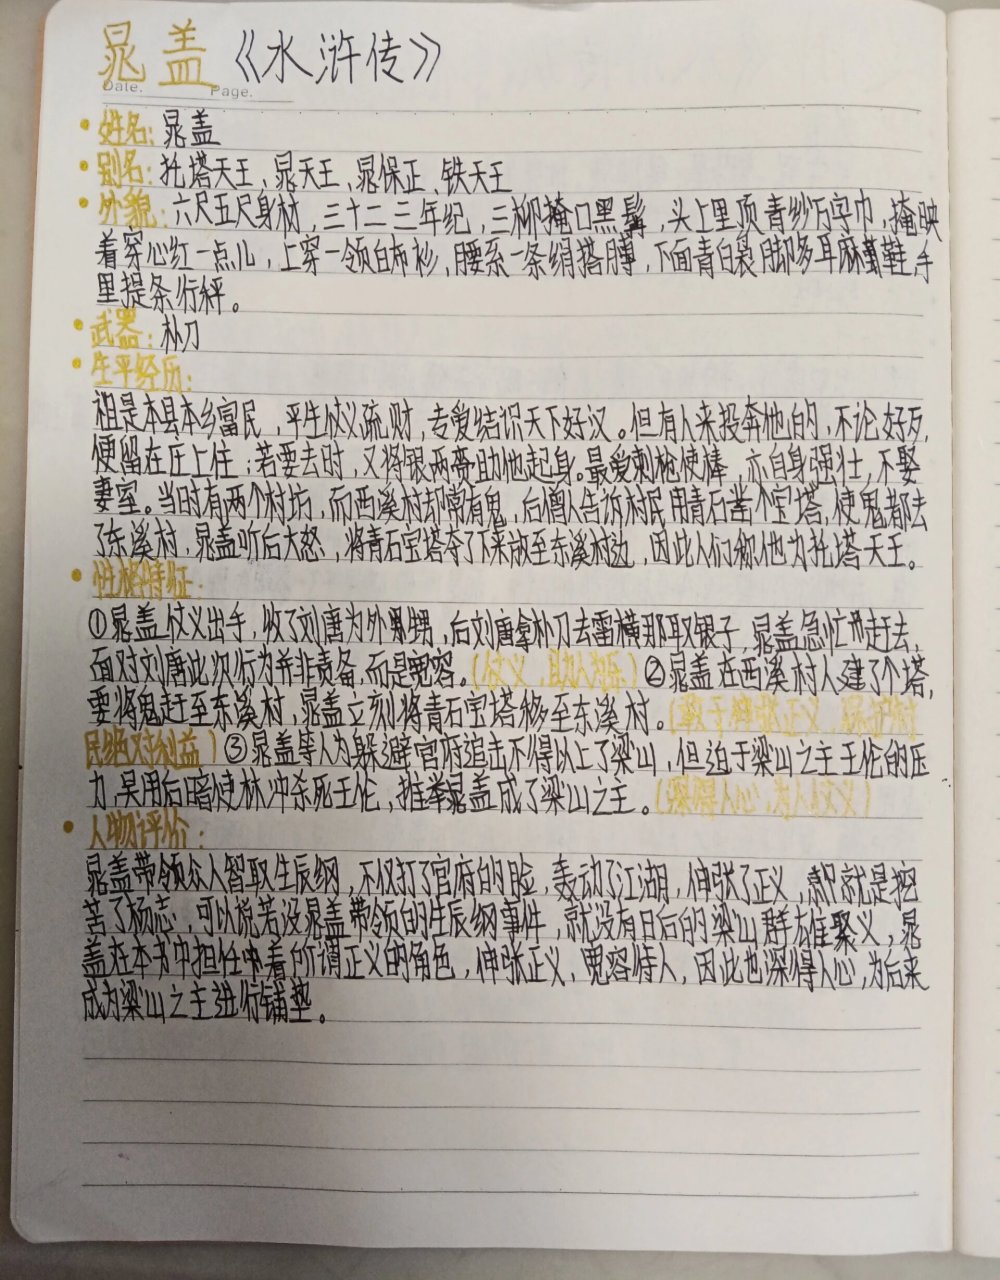 晁盖《水浒传》
Date. Page.
·姓名:晁盖
·别名:托塔天王、晁天王、晁保正、铁天王
·外貌:六尺五尺身材,三十二三年纪,三柳掩口黑髯,头上里顶青纱万字巾,掩映
着穿心红一点儿,上穿一领白布衫,腰系一条绢搭膊,下面青白裹脚多耳麻鞋,手
里提条行秤。
·武器:朴刀
·生平经历:
祖是本县本乡富民,平生仗义疏财,专爱结识天下好汉。但有人来投奔他的,不论好歹,
便留在庄上住;若要去时,又将银两赍助他起身。最爱刺枪使棒,亦自身强壮,不娶
妻室。当时有两个村坊,而西溪村却常有鬼,后僧人告诉村民用青石凿个宝塔,使鬼都去
了东溪村,晁盖听后大怒,将青石宝塔夺了下来放至东溪村边,因此人们称他为托塔天王。
·性格特征:
①晁盖仗义出手,收了刘唐为外甥,后刘唐拿朴刀去雷横那取银子,晁盖急忙赶去,
面对刘唐此次行为并非责备,而是宽容。(仗义,助人为乐)②晁盖在西溪村人建了个塔,
要将鬼赶至东溪村,晁盖立刻将青石宝塔移至东溪村。(敢于伸张正义,保护村
民绝对利益)③晁盖等人为躲避官府追击不得以上了梁山,但迫于梁山之主王伦的压
力,吴用后暗使林冲杀死王伦,推举晁盖成了梁山之主。(深得人心,为人仗义)
·人物评价:
晁盖带领众人智取生辰纲,不仅打了官府的脸,轰动了江湖,伸张了正义,就是挖
苦了杨志,可以说若没晁盖带领的生辰纲事件,就没有日后的梁山群雄聚义,晁
盖在本书中担任着所谓正义的角色,伸张正义,宽容待人,因此也深得人心,为后来
成为梁山之主进行铺垫。